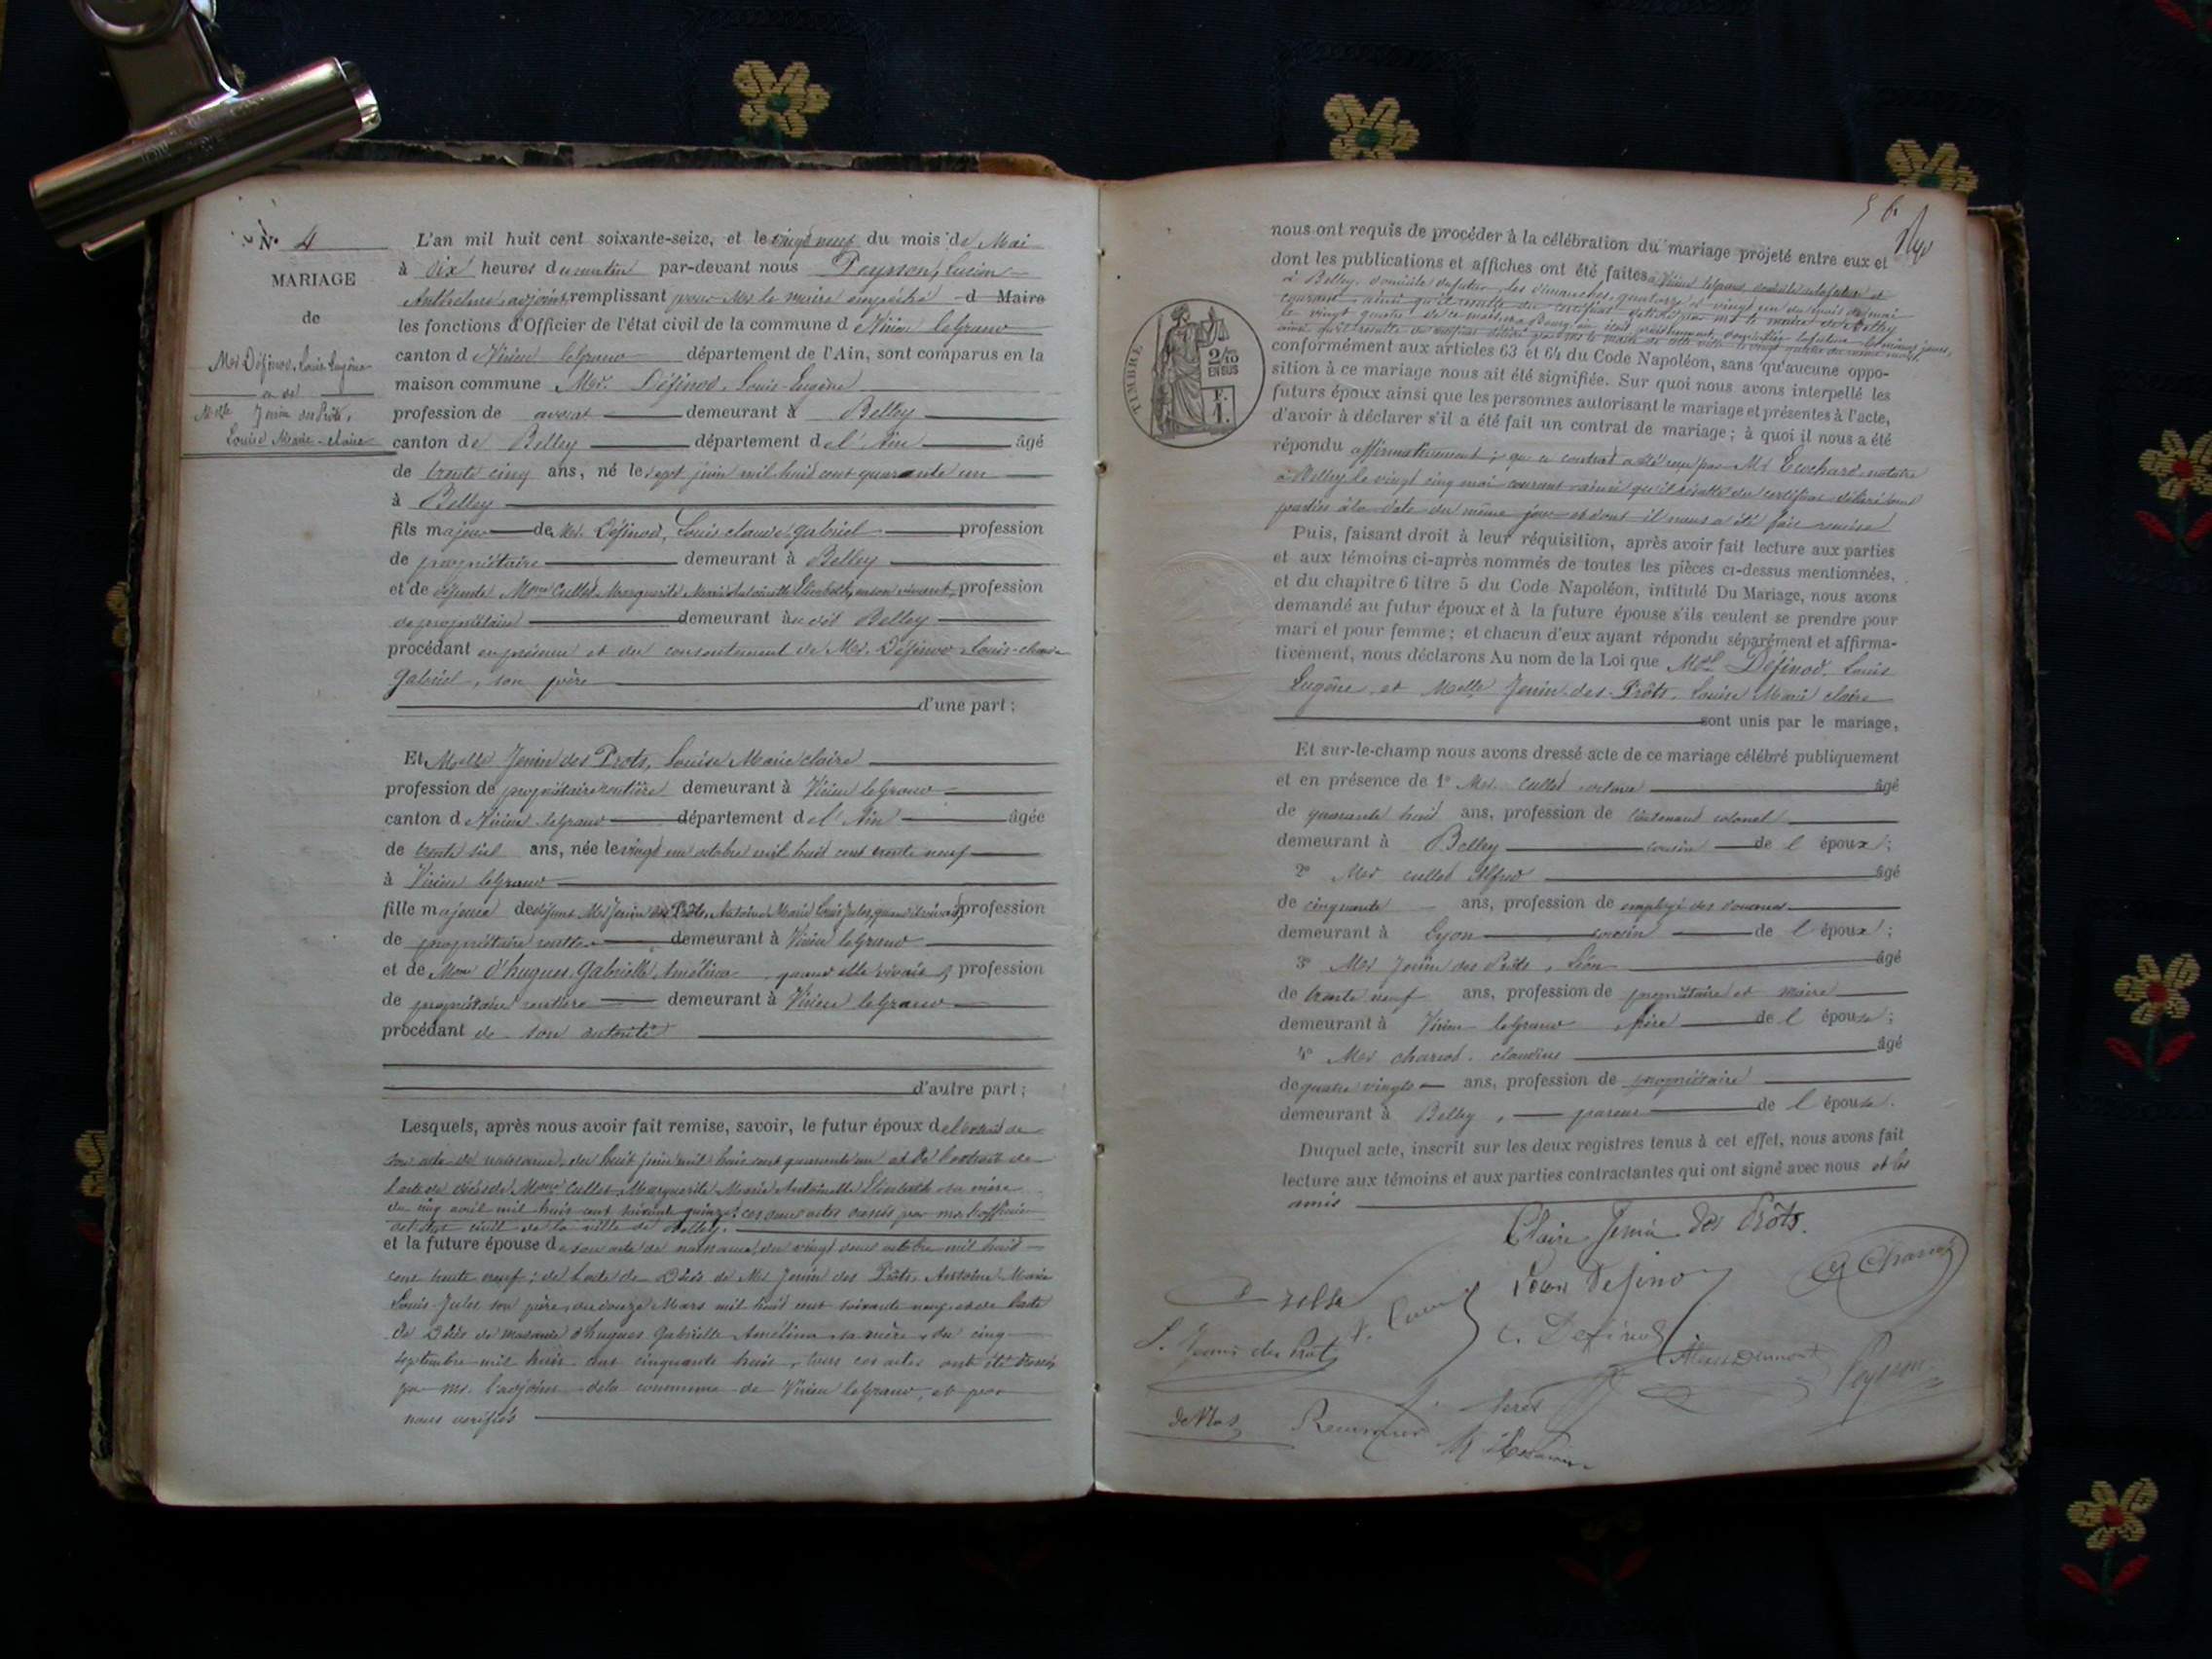 N° 4
MARIAGE
de
Mr Définod, Louis Eugène
et de
Melle Jenin des Prôts,
Louise Marie-claire
L'an mil huit cent soixante-seize, et le vingt neuf du mois de Mai
à dix heures du matin par-devant nous Peysson, Lucien
Anthelme, adjoint, remplissant pour Mr le maire empêché d Maire
les fonctions d'Officier de l'état civil de la commune de Virieu leGrand
canton de Virieu leGrand département de l'Ain, sont comparus en la
maison commune Mr. Définod, Louis-Eugène
profession de avocat demeurant à Belley
canton de Belley département de l'Ain âgé
de trente cinq ans, né le sept juin mil huit cent quarante un
à Belley
fils majeur de Mr. Définod, Louis claude gabriel profession
de propriétaire demeurant à Belley
et de défunte Mme Cullet Marguerite Marie Antoinette Elisabeth, en son vivant, profession
de propriétaire demeurant audit Belley
procédant en présence et du consentement de Mr. Définod Louis-claude
gabriel, son père
d'une part ;
Et Melle Jenin des Prots, Louise Marie claire
profession de propriétaire rentière demeurant à Virieu leGrand
canton de Virieu leGrand département de l'Ain âgée
de trente six ans, née le vingt un octobre mil huit cent trente neuf
à Virieu leGrand
fille majeure de défunt Mr Jenin des Prôts, Antoine Marie Louis Jules, quand il vivait, profession
de propriétaire rentier demeurant à Virieu leGrand
et de Mme d'hugues, Gabrielle Amélina, quand elle vivait, profession
de propriétaire rentière demeurant à Virieu leGrand
procédant de son autorité
d'autre part ;
Lesquels, après nous avoir fait remise, savoir, le futur époux de l'extrait de
son acte de naissance, du huit juin mil huit cent quarante un et de l'extrait de
l'acte de décès de Mme Cullet Marguerite Marie Antoinette Elisabeth sa mère
du cinq avril mil huit cent soixante quinze, ces deux actes dressés par mr l'officier
de l'état civil de la ville de Belley.
et la future épouse de son acte de naissance, du vingt deux octobre mil huit
cent trente neuf ; de l'acte de Décès de Mr Jenin des Prôts, Antoine Marie
Louis-Jules son père, du douze Mars mil huit cent soixante neuf, et de l'acte
de Décès de madame d'hugues Gabrielle Amélina sa mère, du cinq
septembre mil huit cent cinquante huit, tous ces actes ont été dressés
par mr. l'adjoint de la commune de Virieu leGrand, et par
nous vérifiés
56
nous ont requis de procéder à la célébration du mariage projeté entre eux et
dont les publications et affiches ont été faites à Virieu leGrand, domicile de la future et
à Belley, domicile du futur, les dimanches, quatorze et vingt un du mois de mai
courant, ainsi qu'il résulte du certificat délivré par mr le maire de Belley
le vingt quatre de ce mois
TIMBRE
2/10
EN SUS
F.
1.
conformément aux articles 63 et 64 du Code Napoléon, sans qu'aucune oppo-
sition à ce mariage nous ait été signifiée. Sur quoi nous avons interpellé les
futurs époux ainsi que les personnes autorisant le mariage et présentes à l'acte,
d'avoir à déclarer s'il a été fait un contrat de mariage ; à quoi il nous a été
répondu affirmativement ; que ce contrat a été reçu par Mr Ecochard notaire
à Belley le vingt cinq mai courant ainsi qu'il résulte du certificat délivré aux
parties à la date du même jour et dont il nous a été fait remise
Puis, faisant droit à leur réquisition, après avoir fait lecture aux parties
et aux témoins ci-après nommés de toutes les pièces ci-dessus mentionnées,
et du chapitre 6 titre 5 du Code Napoléon, intitulé Du Mariage, nous avons
demandé au futur époux et à la future épouse s'ils veulent se prendre pour
mari et pour femme ; et chacun d'eux ayant répondu séparément et affirma-
tivement, nous déclarons Au nom de la Loi que Mr Définod, Louis
Eugène et Melle Jenin-des-Prôts, Louise Marie claire
sont unis par le mariage,
Et sur-le-champ nous avons dressé acte de ce mariage célébré publiquement
et en présence de 1° Mr. Cullet octave âgé
de quarante huit ans, profession de lieutenant colonel
demeurant à Belley cousin de l'époux ;
2° Mr cullet Alfred âgé
de cinquante ans, profession de employé des douanes
demeurant à Lyon cousin de l'époux ;
3° Mr Jenin des Prôts, Léon âgé
de trente neuf ans, profession de propriétaire et maire
demeurant à Virieu leGrand, frère de l'épouse ;
4° Mr charcot. claudius âgé
de quatre vingts ans, profession de propriétaire
demeurant à Belley, parent de l'épouse.
Duquel acte, inscrit sur les deux registres tenus à cet effet, nous avons fait
lecture aux témoins et aux parties contractantes qui ont signé avec nous et les
amis
Claire Jenin des Prôts.
Défino
C. Definod
L. Jenin des Prôts
Peysson